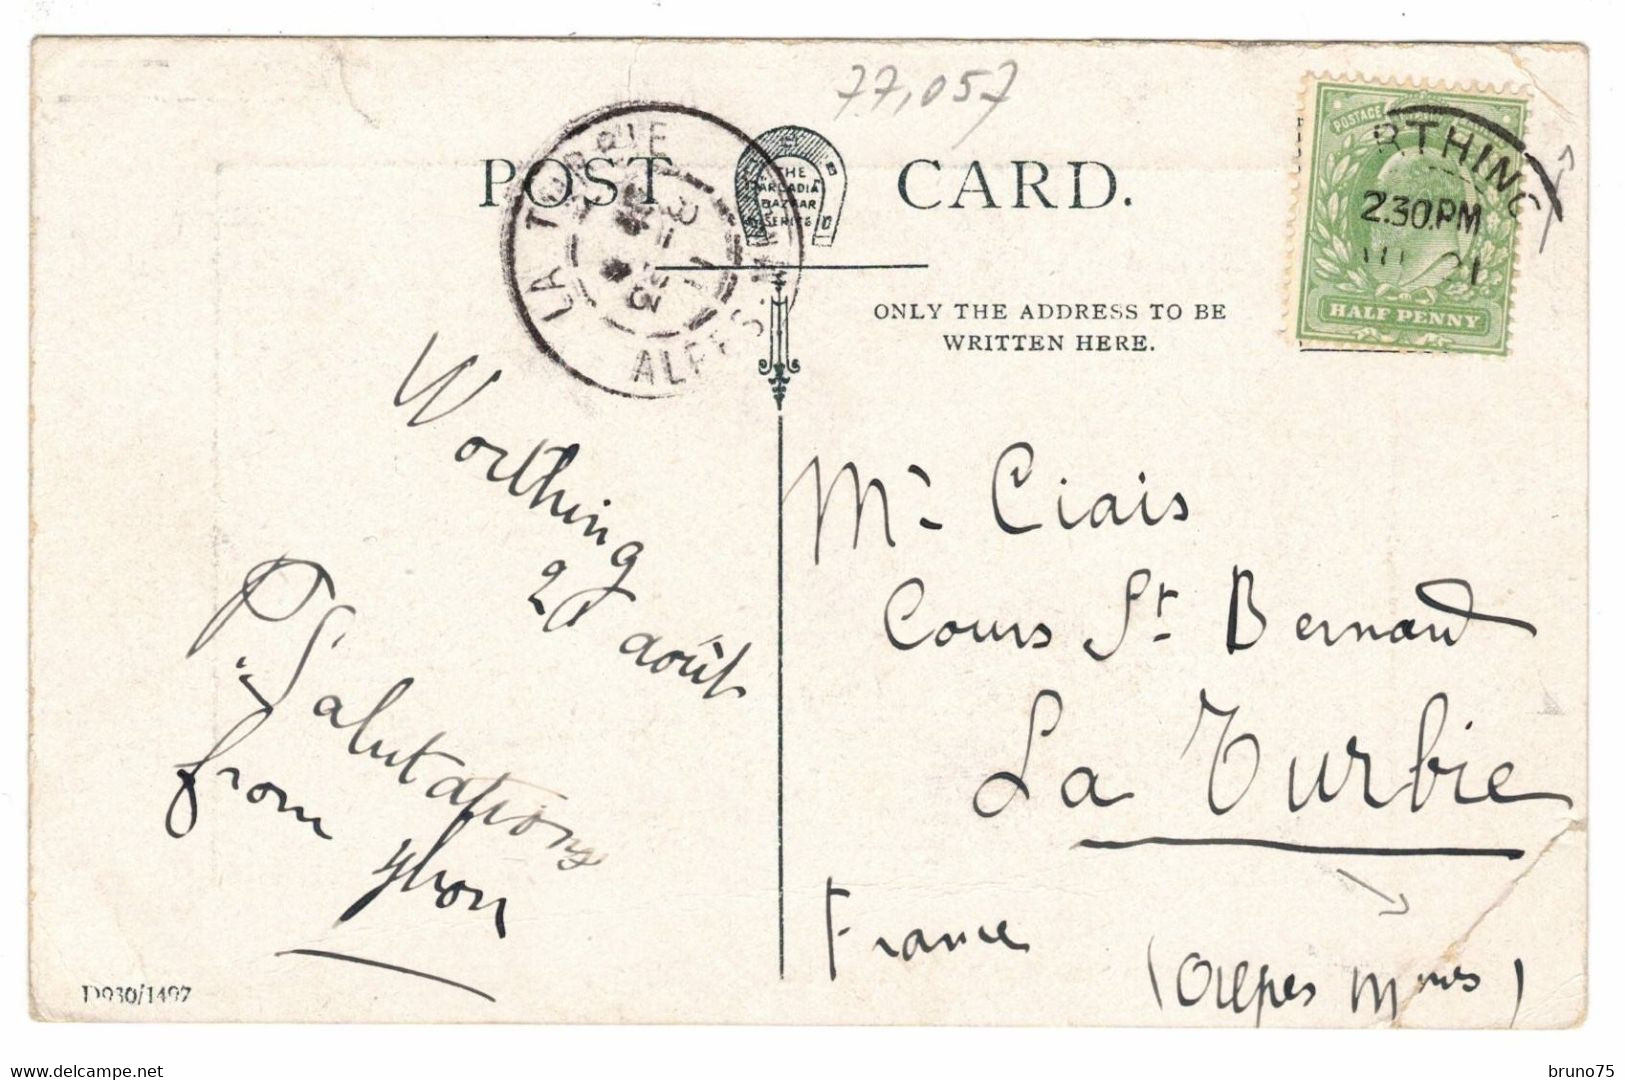 77,057
POST CARD.
THE
ARCADIA
BAZAAR
SERIES
LA TURBIE
ALPES
POSTAGE
RTHING
2.30.PM
21
HALF PENNY
ONLY THE ADDRESS TO BE
WRITTEN HERE.
Worthing
20 août
Salutations
from
Mr Ciais
Cours St Bernard
La Turbie
France
(Alpes Mmes)
D930/1497
delcampe.net
bruno75